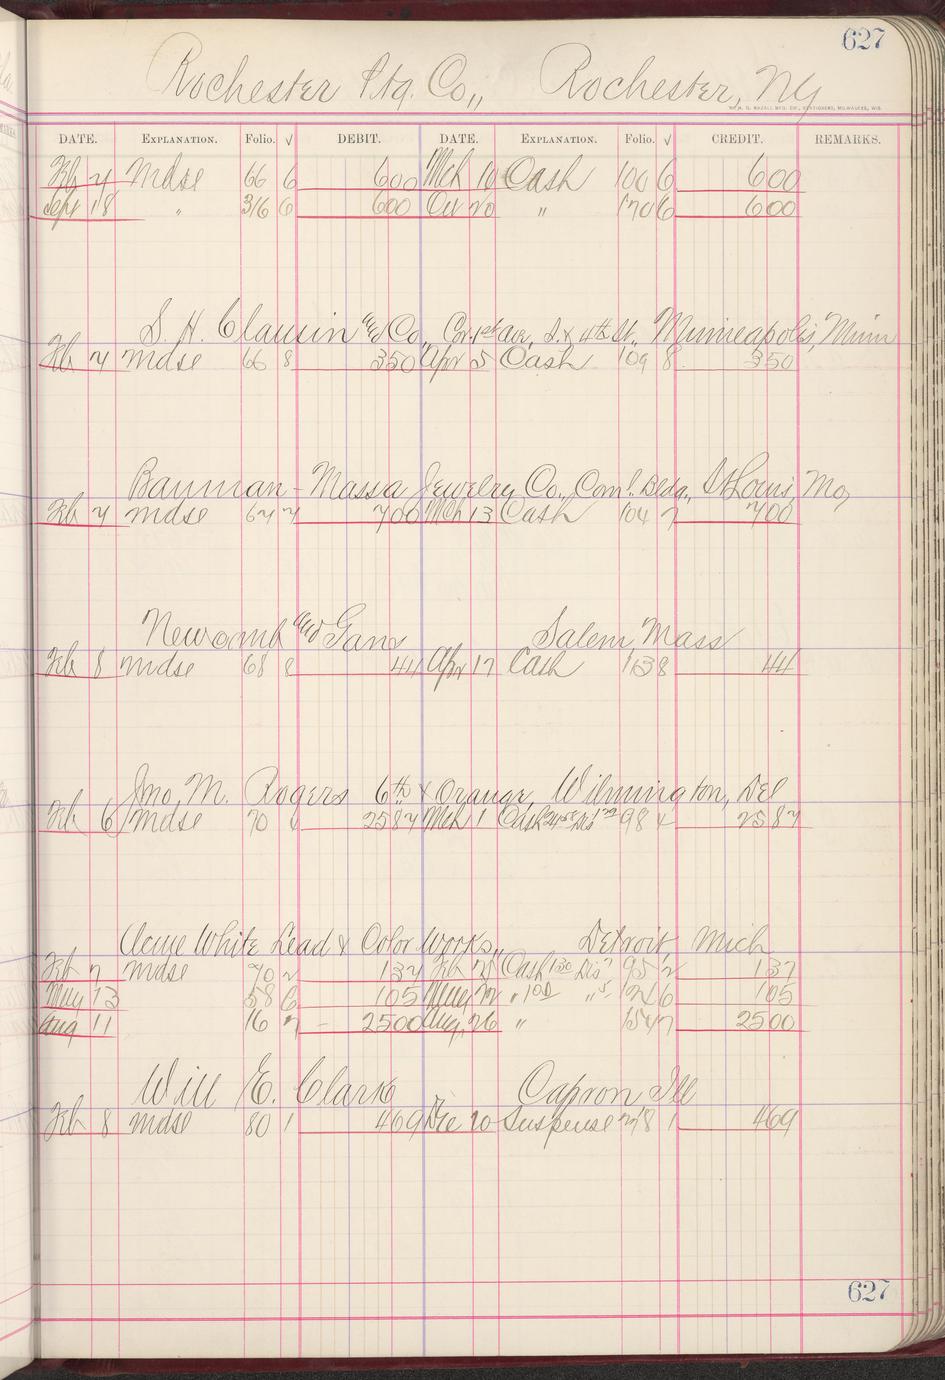 627
Rochester Ptg. Co,, Rochester, NY
WM. G. NAZAL MFG. CO., STATIONERS, MILWAUKEE, WIS.
DATE. EXPLANATION. Folio. √ DEBIT. DATE. EXPLANATION. Folio. √ CREDIT. REMARKS.
Feb 7 Mdse 66 6 600 Mch 10 Cash 100 6 600
Sept 18 " 316 6 600 Oct 20 " 170 6 600
S. H. Clausin and Co., Cor. 1st ave, S. & 4th St., Minneapolis, Minn
Feb 7 mdse 66 8 350 Apr 5 Cash 109 8 350
Bauman - Massa Jewelry Co., Coml. Bldg, St Louis, Mo,
Feb 7 mdse 67 7 700 Mch 13 Cash 104 7 700
Newcomb and Gans Salem, Mass
Feb 8 mdse 68 8 44 Apr 17 Cash 113 8 44
Jno, M. Rogers 6th & Orange, Wilmington, Del
Feb 6 mdse 70 2587 Mch 1 Cash Dis 98 2587
Acme White Lead & Color Works,, Detroit, Mich
Feb 7 mdse 70 2 137 Feb 21 Cash 130 Dis 7 95 2 137
May 13 58 6 105 May 22 " 100 " 5 121 6 105
Aug 11 16 7 - 2500 Aug 26 " 154 7 2500
Will E. Clark Capron Ill
Feb 8 mdse 80 1 469 Dec 20 Suspense 278 1 469
627